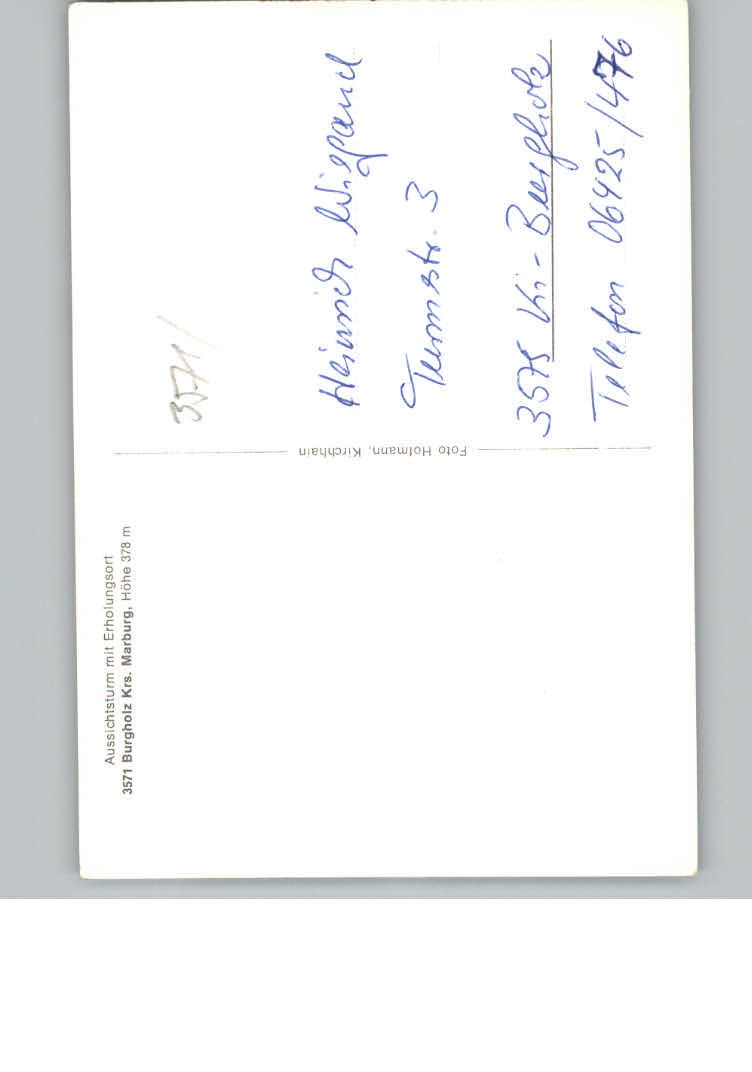 Aussichtsturm mit Erholungsort
3571 Burgholz Krs. Marburg, Höhe 378 m
Foto Hofmann, Kirchhain
3571/
Heinrich Wiegand
Turmstr. 3
3575 Ki-Burgholz
Telefon 06425/476